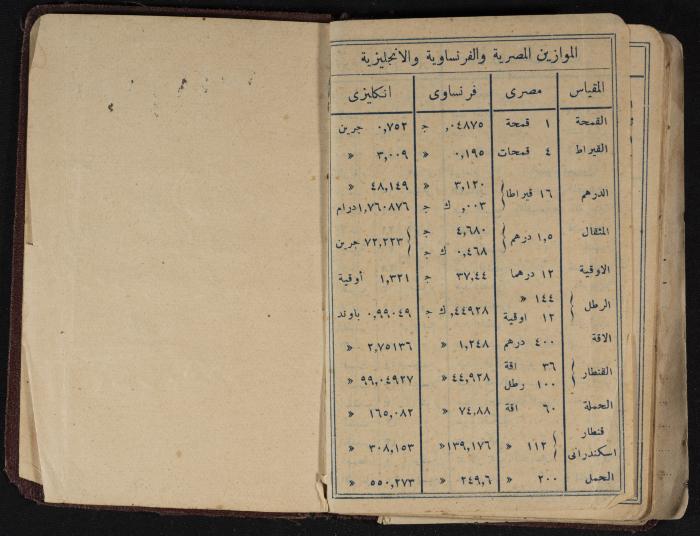 الموازين المصرية والفرنساوية والانجليزية
المقياس مصرى فرنساوى انكليزى
القمحة ١ قمحة ٠٤٨٧٥, ج ٠,٧٥٢ جرين
القيراط ٤ قمحات ٠,١٩٥ « ٣,٠٠٩ «
٣,١٢٠ « ٤٨,١٤٩ «
الدرهم ١٦ قيراطا
٠٠٣,. ك ج ١,٧٦٠٨٧٦ درام
المثقال ١,٥ درهم ٤,٦٨٠ ج ٧٢,٢٢٣ جرين
٠,٤٦٨ ك ج
الاوقية ١٢ درهما ٣٧,٤٤ ج ١,٣٢١ أوقية
١٤٤ «
الرطل ١٢ اوقية ٤٤٩٢٨, ك ج ٠,٩٩٠٤٩ باوند
الاقة ٤٠٠ درهم ١,٢٤٨ « ٢,٧٥١٣٦ «
٣٦ اقة
القنطار ١٠٠ رطل ٤٤,٩٢٨ « ٩٩,٠٤٩٢٧ «
الحملة ٦٠ اقة ٧٤,٨٨ « ١٦٥,٠٨٢ «
قنطار
اسكندرانى ١١٢ « ١٣٩,١٧٦ « ٣٠٨,١٥٣ «
الحمل ٢٠٠ « ٢٤٩,٦ « ٥٥٠,٢٧٣ «